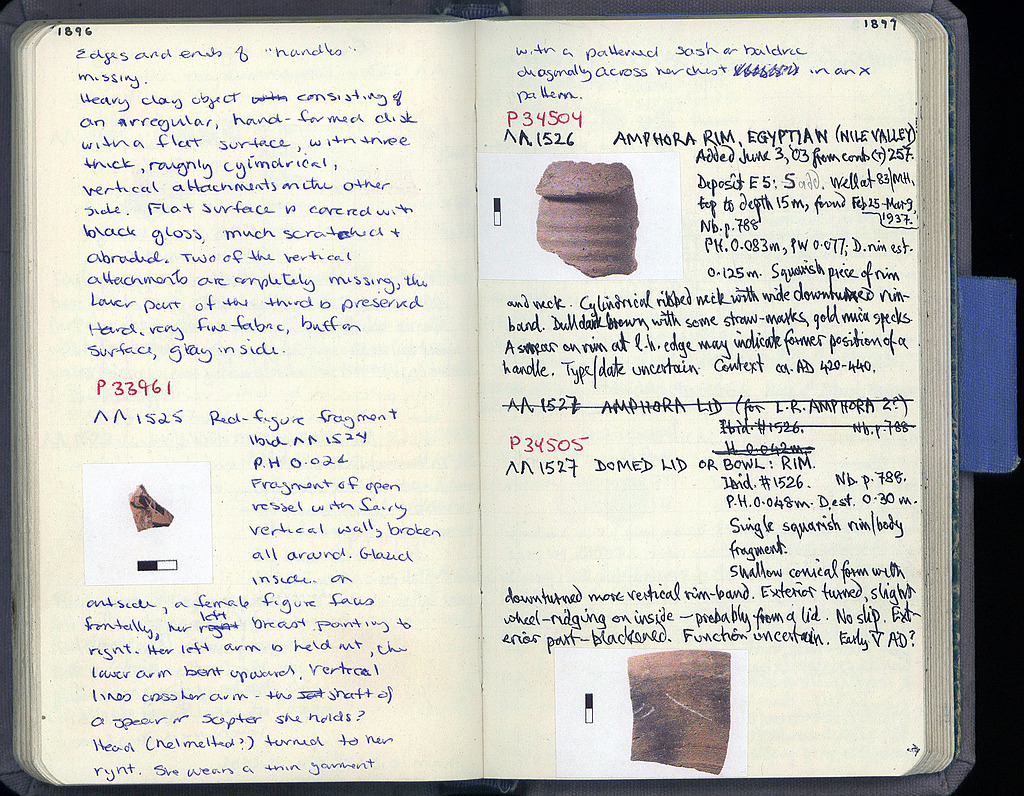 1896
Edges and ends of "handles"
missing.
Heavy clay object with consisting of
an irregular, hand-formed disk
with a flat surface, with three
thick, roughly cylindrical,
vertical attachments on the other
side. Flat surface is covered with
black gloss, much scratched +
abraded. Two of the vertical
attachments are completely missing, the
lower part of the third is preserved
Hard, very fine fabric, buff on
surface, gray inside.
P 33961
ΛΛ 1525 Red-figure fragment
Ibid ΛΛ 1524
P.H 0.024
Fragment of open
vessel with fairly
vertical wall, broken
all around. Glazed
inside. On
outside, a female figure faces
frontally, her right left breast pointing to
right. Her left arm is held out, the
lower arm bent upward. Vertical
lines cross her arm - the shaft of
a spear or scepter she holds?
Head (helmeted?) turned to her
right. She wears a thin garment
1897
with a patterned sash or baldric
diagonally across her chest in an x
pattern.
P 34504
ΛΛ 1526 AMPHORA RIM, EGYPTIAN (NILE VALLEY)
Added June 3, '03 from cont. (+) 257.
Deposit E 5:5 add. Well at 83/ΜΗ,
top to depth 15 m, found Feb 25-Mar 9,
1937.
Nb. p. 788
PH. 0.083m, PW 0.077; D. rim est.
0.125m. Squarish piece of rim
and neck. Cylindrical ribbed neck with wide downturned rim-
band. Dull dark brown, with some straw-marks, gold mica specks.
A smear on rim at l.h. edge may indicate former position of a
handle. Type/date uncertain. Context ca. AD 420-440.
ΛΛ 1527 AMPHORA LID (for L.R. AMPHORA 2?)
Ibid. #1526. Nb. p. 788
H 0.042m.
P 34505
ΛΛ 1527 DOMED LID OR BOWL: RIM.
Ibid. #1526. Nb. p. 788.
P.H. 0.048m. D. est. 0.30 m.
Single squarish rim/body
fragment.
Shallow conical form with
downturned more vertical rim-band. Exterior turned, slight
wheel-ridging on inside – probably from a lid. No slip. Ext-
erior part-blackened. Function uncertain. Early
AD?